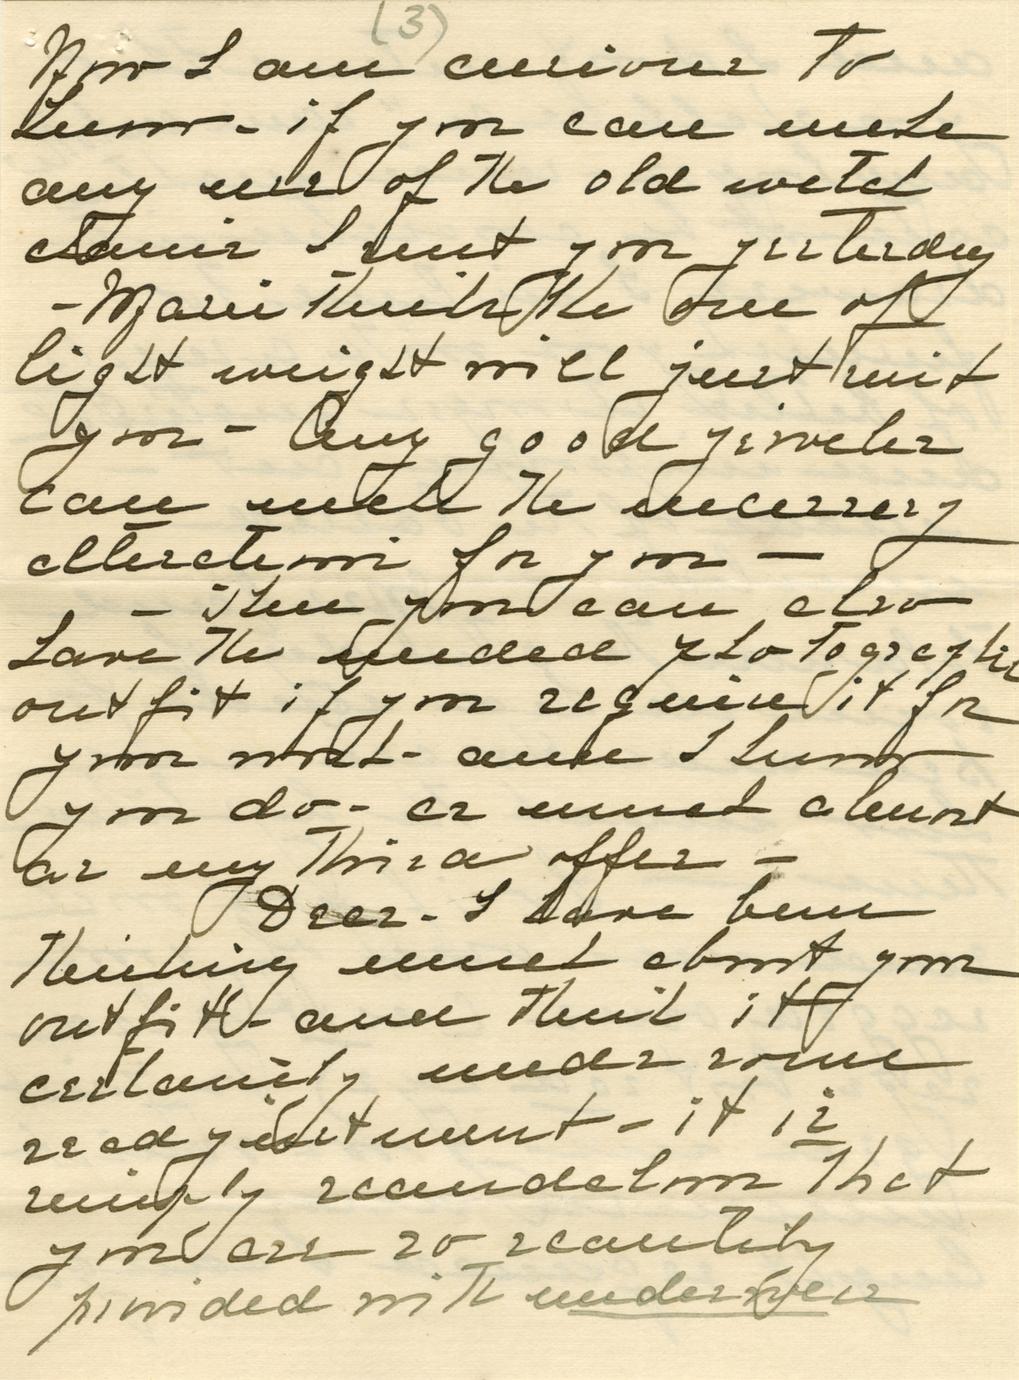 (3)
Now I am curious to
know - if you can make
any use of the old watch
chains I sent you yesterday
- Marie thinks the one of
light weight will just suit
you - Any good jeweler
can make the necessary
alterations for you —
- Then you can also
have the needed photographic
outfit if you require it for
your work - and I know
you do - as much almost
as my third offer -
Dear - I have been
thinking much about your
outfit - and think it
certainly needs some
readjustment - it is
simply scandalous that
you are so scantily
provided with underwear